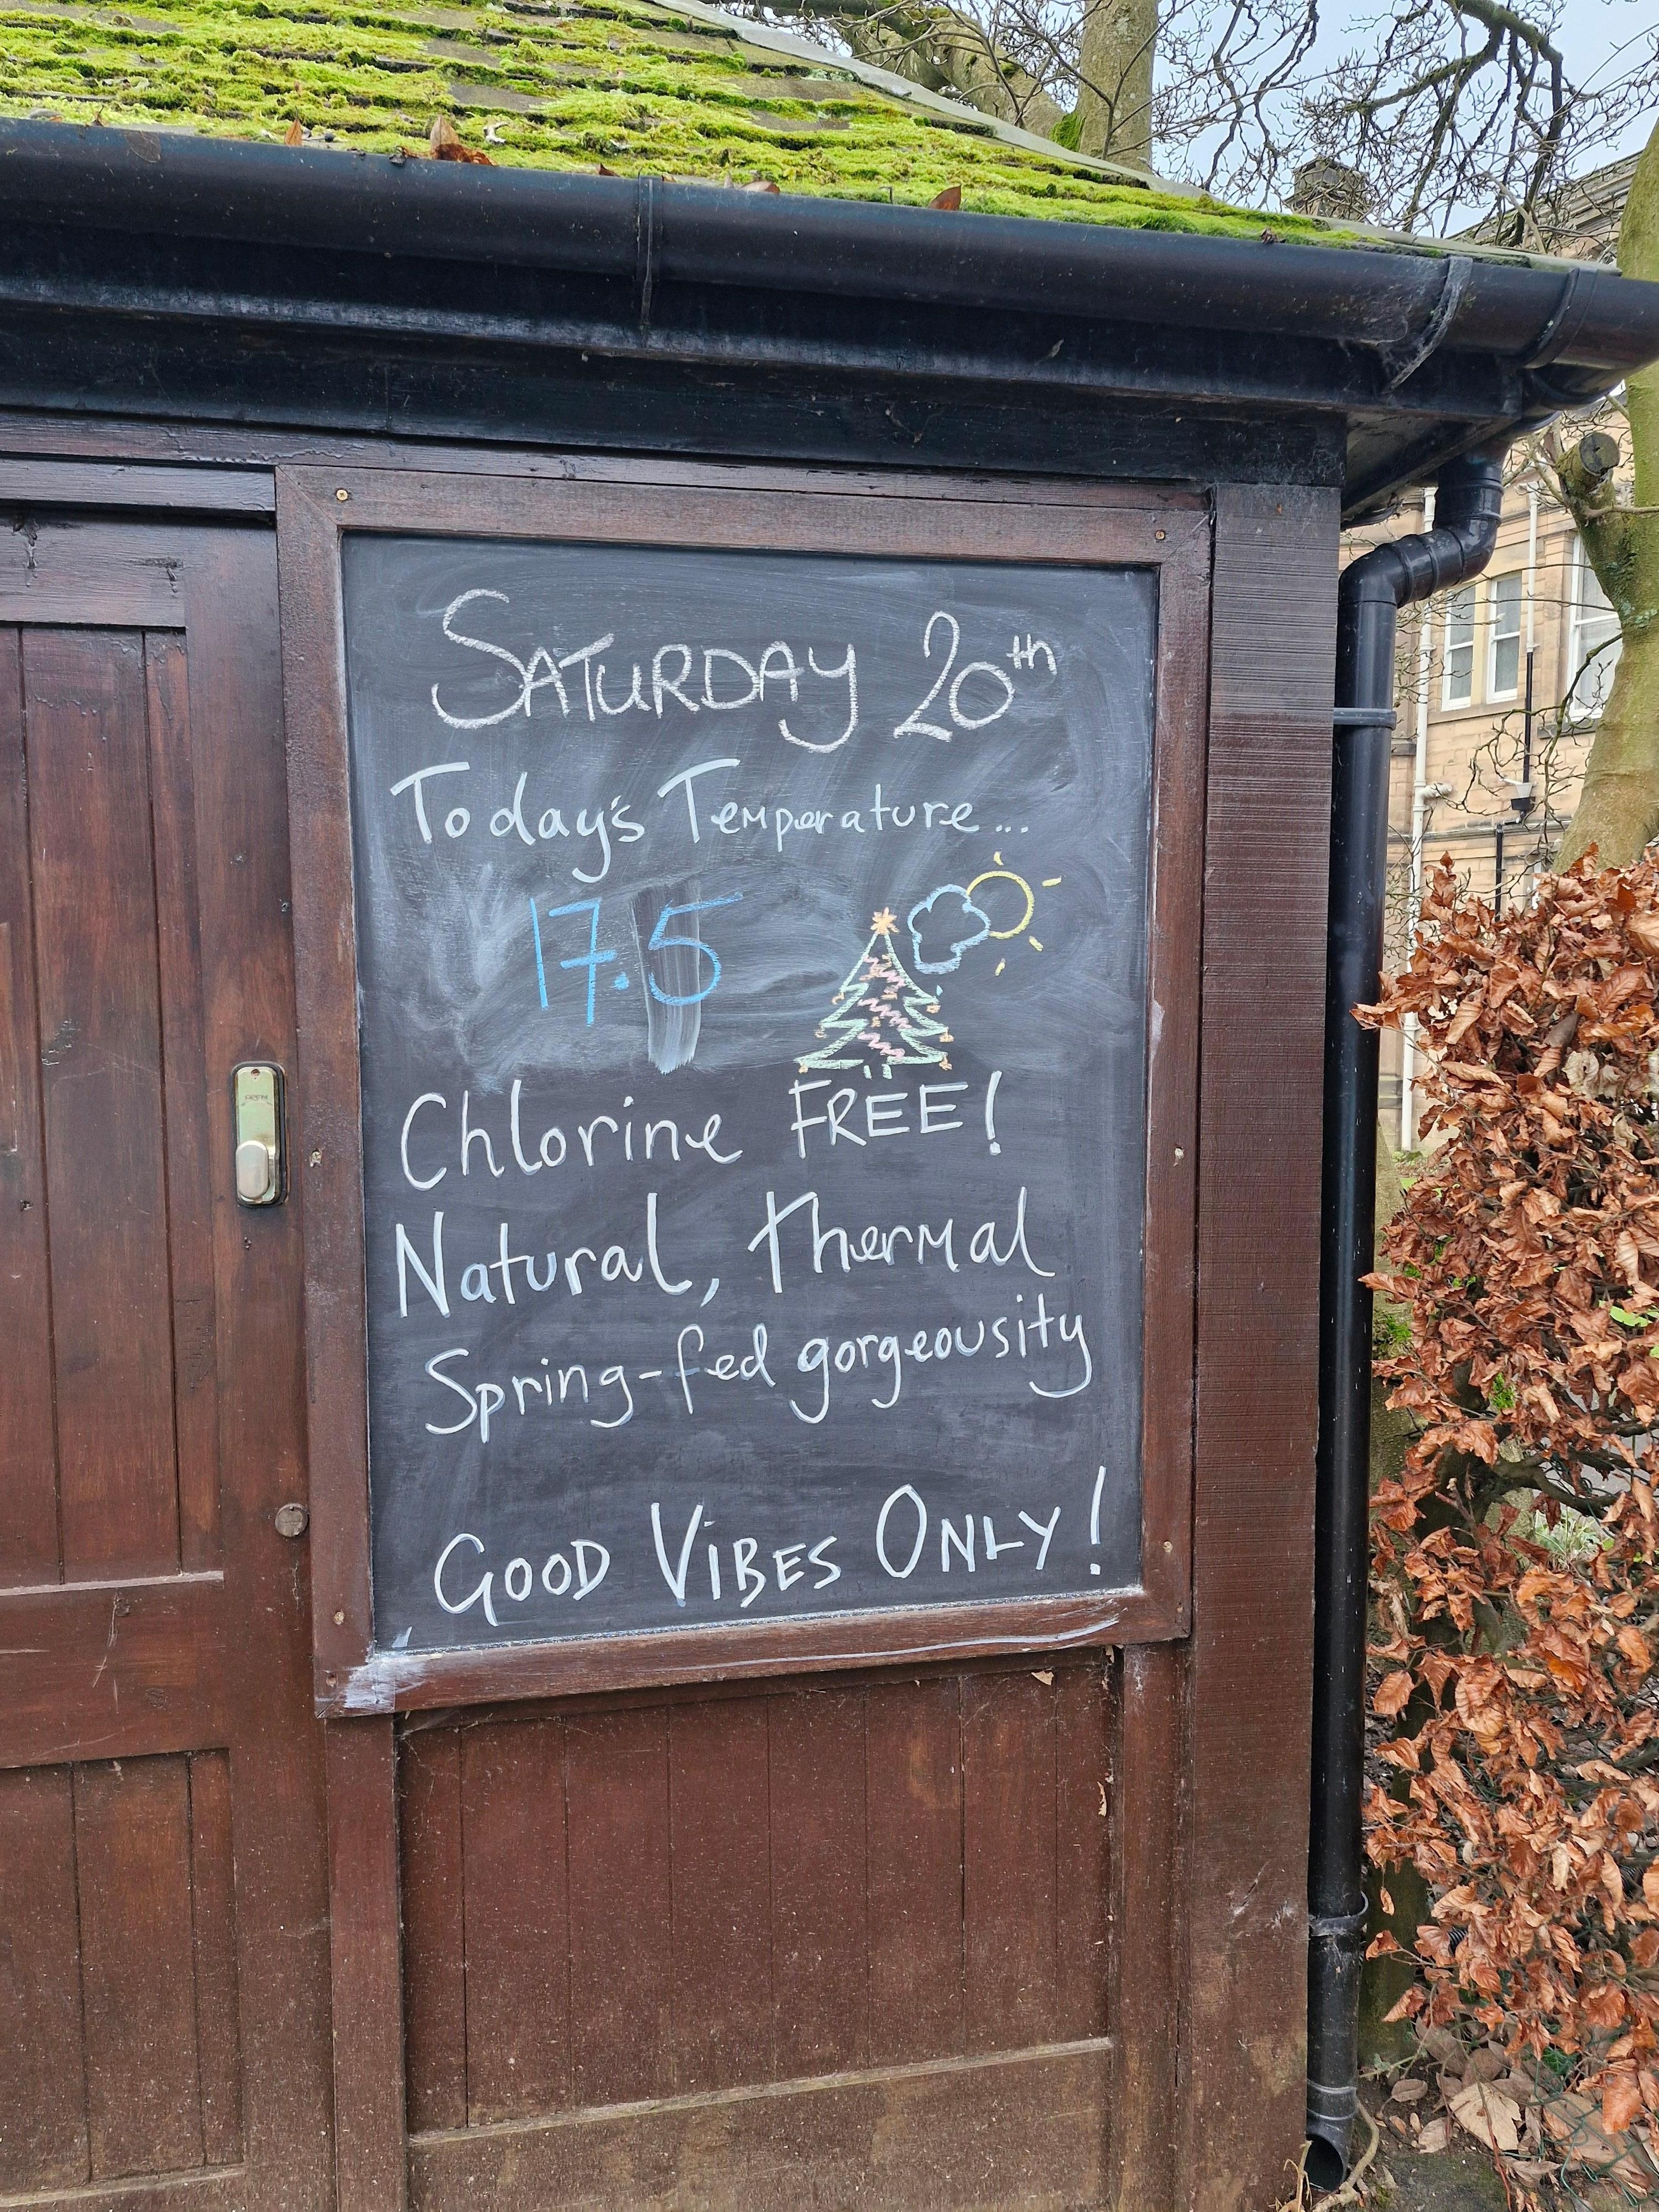 SATURDAY 20th
Today's Temperature...
17.5
Chlorine FREE!
Natural, thermal
Spring-fed gorgeousity
GOOD VIBES ONLY!